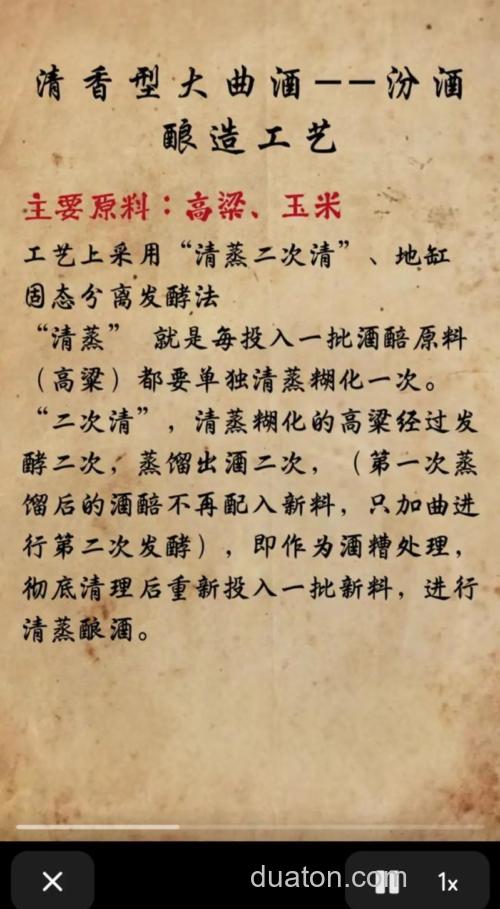 清香型大曲酒——汾酒
酿造工艺
主要原料：高粱、玉米
工艺上采用“清蒸二次清”、地缸
固态分离发酵法
“清蒸” 就是每投入一批酒醅原料
（高粱）都要单独清蒸糊化一次。
“二次清”，清蒸糊化的高粱经过发
酵二次，蒸馏出酒二次，（第一次蒸
馏后的酒醅不再配入新料，只加曲进
行第二次发酵），即作为酒糟处理，
彻底清理后重新投入一批新料，进行
清蒸酿酒。
duaton.com
1x